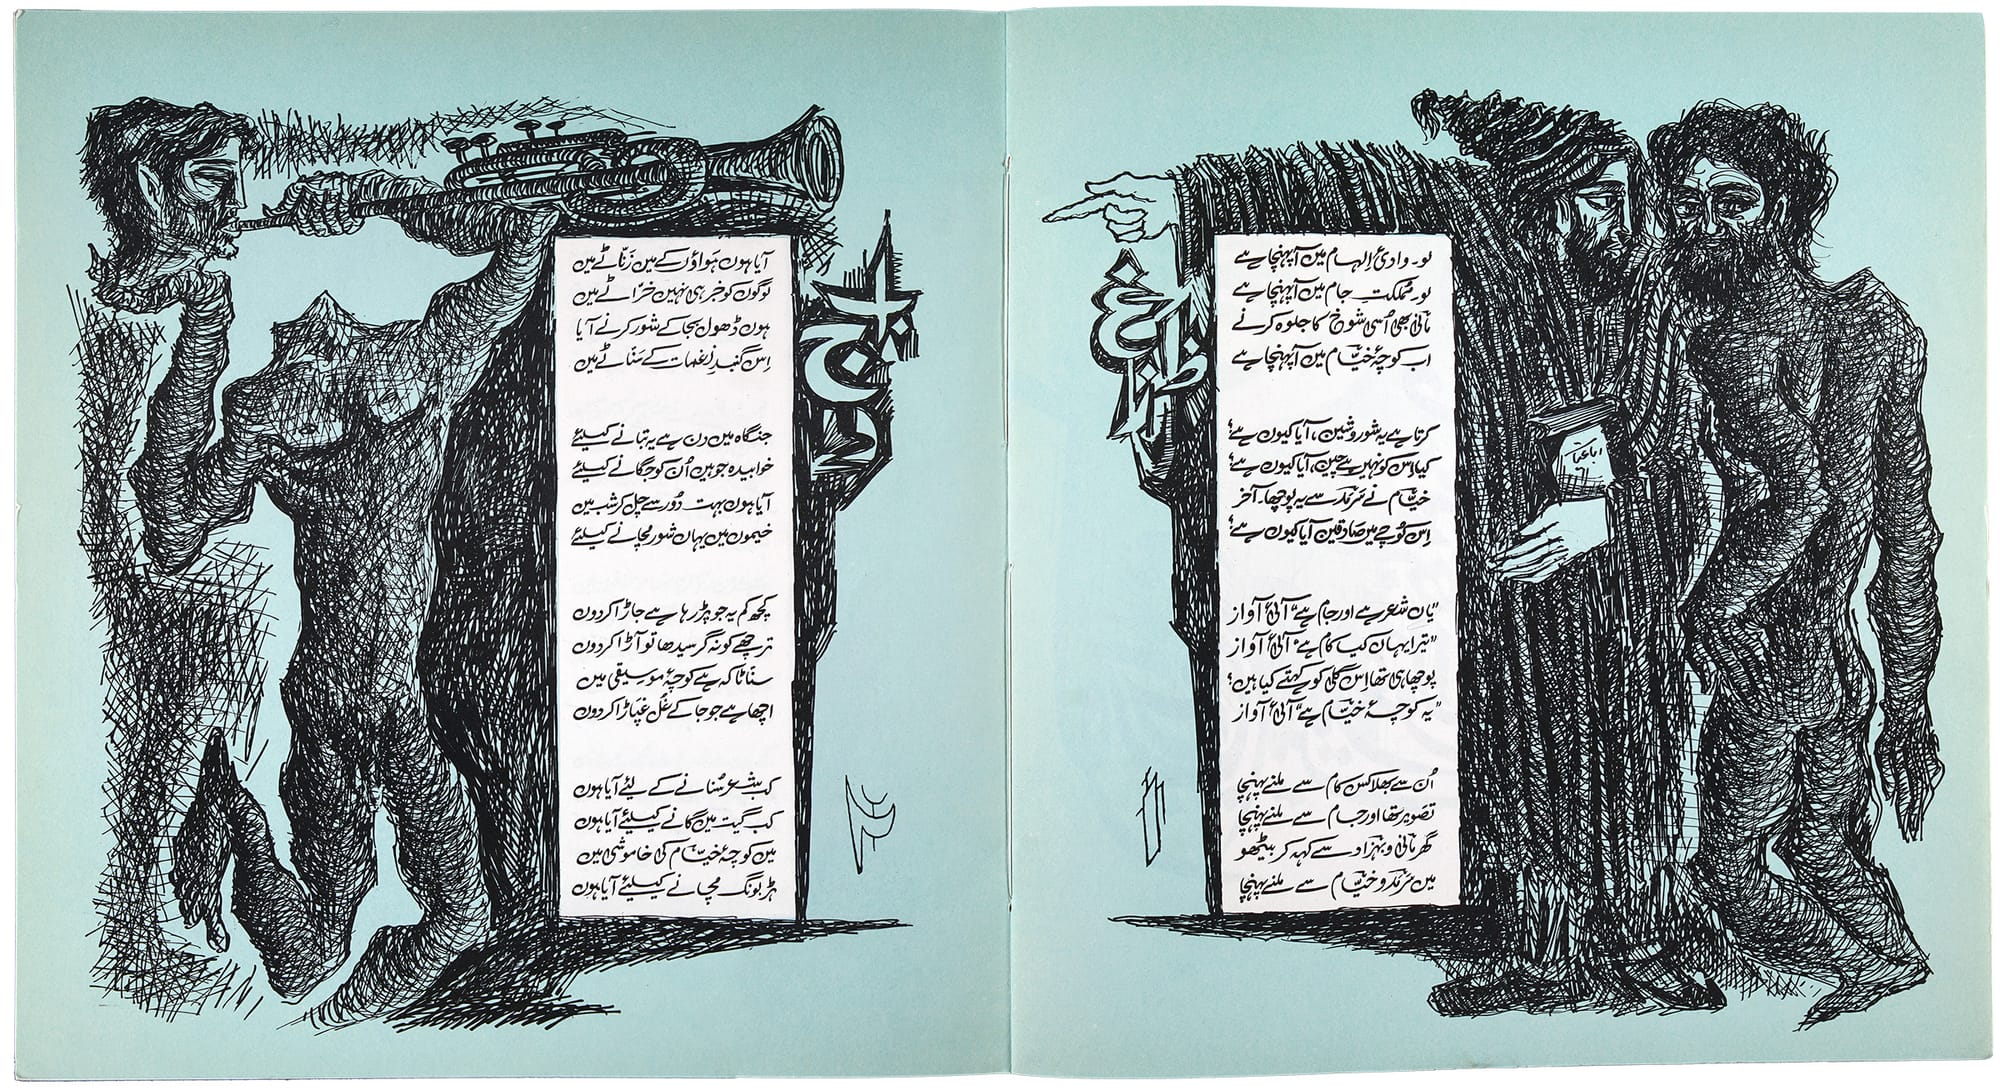 تو وادیٔ اِلہام میں آ پہنچا ہے
تو مُملکتِ جام میں آ پہنچا ہے
مانی بھی اُسی شوخ کا جلوہ کرنے
اب کوچۂ خیّام میں آ پہنچا ہے
کرتا ہے یہ شور و شین، آیا کیوں ہے؟
کیا اس کو نہیں ہے چین، آیا کیوں ہے؟
خیّام نے سَرمَد سے یہ پوچھا۔ آخر
اِس کُوچے میں صادقین آیا کیوں ہے؟
"یاں شعر ہے اور جام ہے" آئی آواز
"تیرا یہاں کیا کام ہے" آئی آواز
پوچھا ہی تھا اِس گلی کو کہتے کیا ہیں؟
"یہ کوچۂ خیّام ہے" آئی آواز
اُن سے بھلا کس کام سے ملنے پہنچا
تصویر تھا اور جام سے ملنے پہنچا
گھر مانی و بہزاد سے کہہ کر بیٹھو
میں سَرمَد و خیّام سے ملنے پہنچا
رباعیات
آیا ہوں ہواؤں کے میں زنّاٹے میں
لوگوں کو خبر ہی نہیں خرّاٹے میں
ہوں ڈھول بجا کے شور کرنے آیا
اِس گنبدِ نغمات کے سَنّاٹے میں
جنگاہ میں دن ہے یہ بتانے کیلئے
خوابیدہ جو ہیں اُن کو جگانے کیلئے
آیا ہوں بہت دُور سے چل کر شب میں
خیموں میں یہاں شور مچانے کیلئے
کچھ کم یہ جو پڑ رہا ہے جاڑا کردوں
ترچھے کو نہ گر سیدھا تو آڑا کردوں
سنّاٹا کہ ہے کوچۂ موسیقی میں
اچھا ہے جو جا کے غُل غپاڑا کردوں
کب شعر سُنانے کے لئے آیا ہوں
کب گیت میں گانے کیلئے آیا ہوں
میں کوچۂ خیّام کی خاموشی میں
ہڑبونگ مچانے کیلئے آیا ہوں